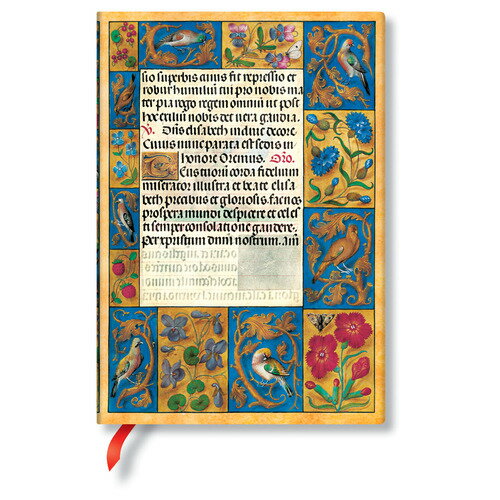 sio superbis aīus fit repressio et
robur humiliū tui pro nobis ma
ter pia rogo regem omniū ut post
hoc exiliū nobis det vera gaudia.
V. Dn̄s elisabeth induit decore.
Cuius nunc parata est sedis in
honore Oremus. Oro.
Tuorum corda fidelium
miserator illustra et beate elisa
beth precibus et gloriosis. fac nos
prospera mundi despicere et celes
ti semper consolatione gaudere.
Per xpristum dnm nostrum. Am